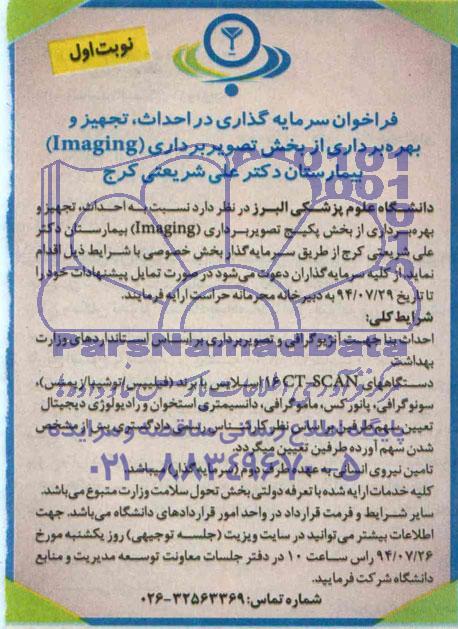 نوبت اول
فراخوان سرمایه گذاری در احداث، تجهیز و
بهره‌برداری از بخش تصویربرداری (Imaging)
بیمارستان دکتر علی شریعتی کرج
دانشگاه علوم پزشکی البرز در نظر دارد نسبت به احداث، تجهیز و
بهره‌برداری از بخش پکیج تصویربرداری (Imaging) بیمارستان دکتر
علی شریعتی کرج از طریق سرمایه‌گذار بخش خصوصی با شرایط ذیل اقدام
نماید. از کلیه سرمایه‌گذاران دعوت می‌شود در صورت تمایل پیشنهادات خود را
تا تاریخ ۹۴/۰۷/۲۹ به دبیرخانه محرمانه حراست ارایه فرمایند.
شرایط کلی:
احداث بنا جهت آنژیوگرافی و تصویربرداری بر اساس استانداردهای وزارت
ParsNamadData
بهداشت
دستگاههای CT-SCAN ۱۶ اسلایس با برند (فیلیپس/توشیبا/زیمنس)،
سونوگرافی، پانورکس، ماموگرافی، دانسیمتری استخوان و رادیولوژی دیجیتال
تعیین سهم طرفین بر اساس نظر کارشناس رسمی دادگستری پس از مشخص
پایگاه اطلاع رسانی مناقصه و مزایده
شدن سهم آورده طرفین تعیین میگردد.
۰۲۱-۸۸۳۴۹۶۷۰-۵
تامین نیروی انسانی به عهده طرف دوم (سرمایه گذار) میباشد
کلیه خدمات ارایه شده با تعرفه دولتی بخش تحول سلامت وزارت متبوع می‌باشد.
سایر شرایط و فرمت قرارداد در واحد امور قراردادهای دانشگاه می‌باشد. جهت
اطلاعات بیشتر می‌توانید در سایت ویزیت (جلسه توجیهی) روز یکشنبه مورخ
۹۴/۰۷/۲۶ راس ساعت ۱۰ در دفتر جلسات معاونت توسعه مدیریت و منابع
دانشگاه شرکت فرمایید.
شماره تماس: ۳۲۵۶۳۳۶۹-۰۲۶